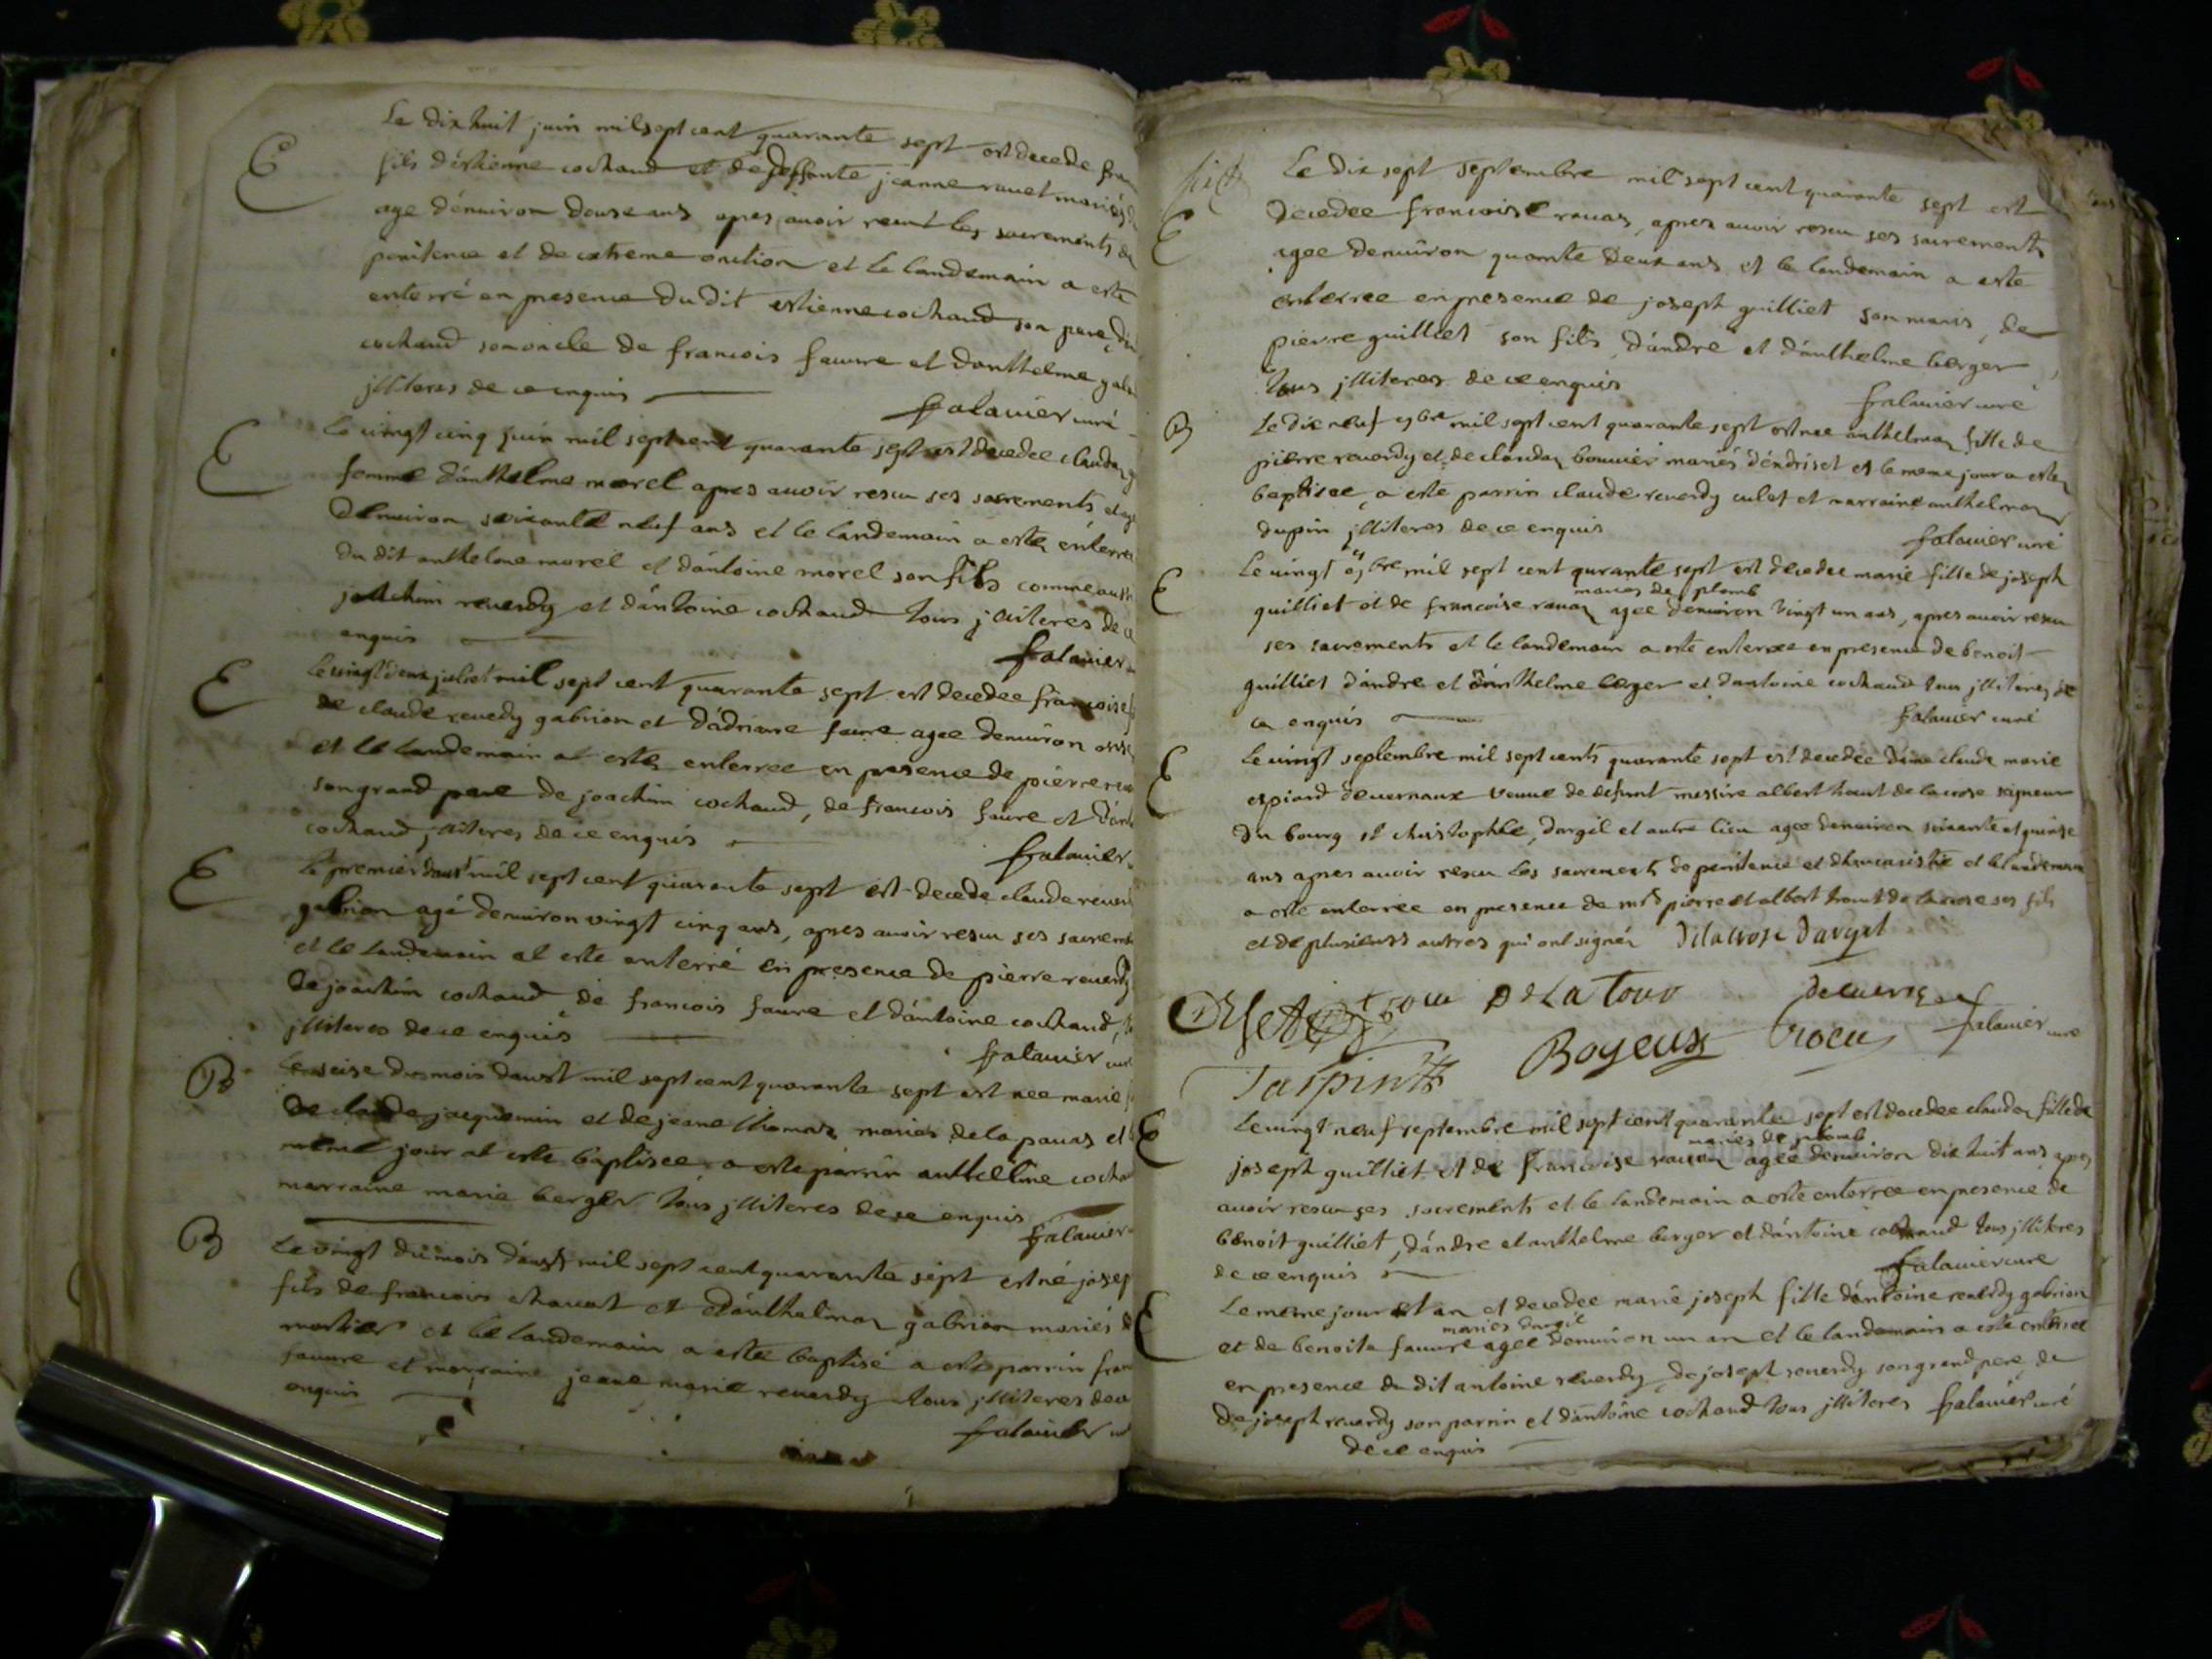 Le dix huit juin mil sept cent quarante sept est decede fran
E
fils d'estienne cochaud et de deffunte jeanne ravet mariés d
age d'enuiron douse ans apres auoir receut les sacrements de
penitence et de extreme onction et le landemain a esté
enterré en presence du dit estienne cochaud son pere, du
cochaud son oncle de francois fauure et danthelme gab
jlliteres de ce enquis
falauier curé
Le uingt cinq juin mil sept cent quarante sept est decedee claudaz
E
femme d'anthelme morel apres auoir rescu ses sacrements et ag
d'enuiron soixante neuf ans et le landemain a esté enterree
du dit anthelme morel et d'antoine morel son fils comme aussi
joachim reuerdy et d'antoine cochaud tous jlliteres de ce
enquis
falauier
Le uingt deux juliet mil sept cent quarante sept est decedee francoise f
E
de claude reuerdy gabrion et d'adriane faure agee denuiron
et le landemain at esté enterree en presence de pierre reue
son grand pere de joachim cochaud, de francois faure et d'ant
cochaud jlliteres de ce enquis
falauier
Le premier daust mil sept cent quarante sept est decede claude reuerd
E
gabrion agé denuiron vingt cinq ans, apres auoir rescu ses sacrem
et le landemain at esté enterré en presence de pierre reuerdy
de joachim cochaud de francois faure et d'antoine cochaud,
jlliteres de ce enquis
falauier curé
Le seise du mois daust mil sept cent quarante sept est nee marie f
B
de claude jacquemin et de jeane thomas mariés de la pauas et l
même jour at esté baptisee, a esté parrin anthelme cocha
marraine marie berger tous jlliteres de ce enquis
falauier
Le vingt du mois d'aust mil sept cent quarante sept est né josep
B
fils de francois chauat et d'anthelmaz gabrion mariés d
mortier et le landemain a esté baptisé a esté parrin fran
fauure et marraine jeane marie reuerdy tous jlliteres de ce
enquis
falauier
Le dix sept septembre mil sept cent quarante sept est
E
decedee francoise rauaz, apres auoir rescu ses sacrements
agee denuiron quarnte deux ans et le landemain a esté
enterree en presence de joseph guilliet son maris, de
pierre guilliet son fils, d'andré et d'anthelme berger
tous jlliteres de ce enquis
falauier curé
B
Le dix neuf 7bre mil sept cent quarante sept est nee anthelmaz fille de
pierre reuerdy et de claudaz bouuier mariés d'endriset et le meme jour a estez
baptisee, a esté parrin claude reuerdy culet et marraine anthelmaz
dupin jlliteres de ce enquis
falauier curé
E
Le uingt 7bre mil sept cent qurante sept est decedee marie fille de joseph
mariés de plomb
guilliet et de francoise rauaz agee denuiron vingt un ans, apres auoir rescu
ses sacrements et le landemain a esté enterree en presence de benoit
guilliet d'andre et d'anthelme berger et dantoine cochaud tous jlliteres de
ce enquis
falauier curé
E
Le uingt septembre mil sept cents quarante sept est decedée dame claude marie
espiard deuernaux veuue de defunt messire albert de lacrose seigneur
du bourg st christophle, dargil et autre lieu agee denuiron soixante et quinse
ans apres auoir rescu les sacrements de penitence et deucaristie et le landemain
a esté enterree en presence de mrs pierre et albert de lacrose ses fils
et de plusieurs autres qui ont signéz Delacrose Dargil
De La Tour
Royeux
falauier curé
E
Le uingt neuf septembre mil sept cent quarante sept est decedee claudaz fille de
mariés de plomb
joseph guilliet et de francoise rauaz agée denuiron dix huit ans apres
auoir rescu ses sacrements et le landemain a esté enterree en presence de
benoit guilliet, d'andre et anthelme berger et d'antoine cochaud tous jlliteres
de ce enquis
falauier curé
E
Le meme jour et an et decedee marie joseph fille d'antoine reuerdy gabrion
mariés dargil
et de benoite fauure agee denuiron un an et le landemain a esté enterree
en presence du dit antoine reuerdy, de joseph reuerdy son grand pere de
de joseph reuerdy son parrin et d'antoine cochaud tous jlliteres falauier curé
de ce enquis